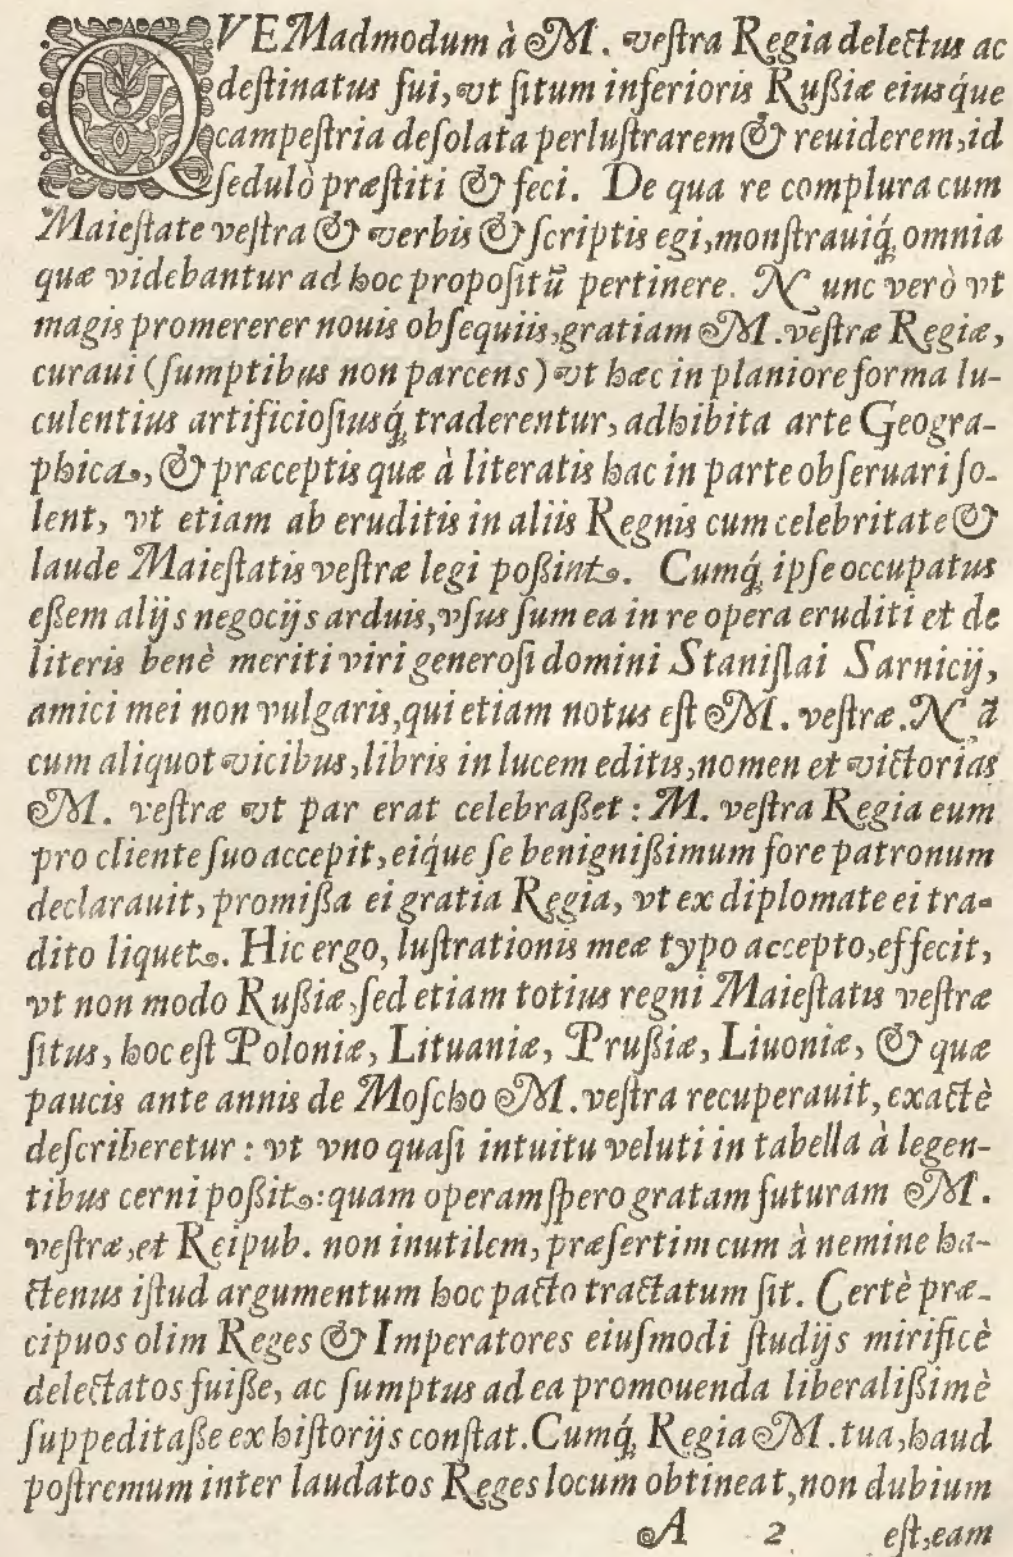 QVEMadmodum à M. vestra Regia delectus ac
destinatus fui, vt situm inferioris Rußiæ eiusq́ue
campestria desolata perlustrarem & reuiderem, id
sedulò præstiti & feci. De qua re complura cum
Maiestate vestra & verbis & scriptis egi, monstrauiq́; omnia
quæ videbantur ad hoc propositũ pertinere. Nunc verò vt
magis promererer nouis obsequiis, gratiam M. vestræ Regiæ,
curaui (sumptibus non parcens) vt hæc in planiore forma lu-
culentius artificiosiusq́; traderentur, adhibita arte Geogra-
phica, & præceptis quæ à literatis hac in parte obseruari so-
lent, vt etiam ab eruditis in aliis Regnis cum celebritate &
laude Maiestatis vestræ legi poßint. Cumq́; ipse occupatus
eßem alijs negocijs arduis, vsus sum ea in re opera eruditi et de
literis benè meriti viri generosi domini Stanislai Sarnicij,
amici mei non vulgaris, qui etiam notus est M. vestræ. Nã
cum aliquot vicibus, libris in lucem editis, nomen et victorias
M. vestræ vt par erat celebraßet: M. vestra Regia eum
pro cliente suo accepit, eiq́ue se benignißimum fore patronum
declarauit, promißa ei gratia Regia, vt ex diplomate ei tra-
dito liquet. Hic ergo, lustrationis meæ typo accepto, effecit,
vt non modo Rußiæ, sed etiam totius regni Maiestatis vestræ
situs, hoc est Poloniæ, Lituaniæ, Prußiæ, Liuoniæ, & quæ
paucis ante annis de Moscho M. vestra recuperauit, exactè
describeretur: vt vno quasi intuitu veluti in tabella à legen-
tibus cerni poßit: quam operam spero gratam futuram M.
vestræ, et Reipub. non inutilem, præsertim cum à nemine ha-
ctenus istud argumentum hoc pacto tractatum sit. Certè præ-
cipuos olim Reges & Imperatores eiusmodi studijs mirificè
delectatos fuiße, ac sumptus ad ea promouenda liberalißimè
suppeditaße ex historijs constat. Cumq́; Regia M. tua, haud
postremum inter laudatos Reges locum obtineat, non dubium
A 2 est, eam